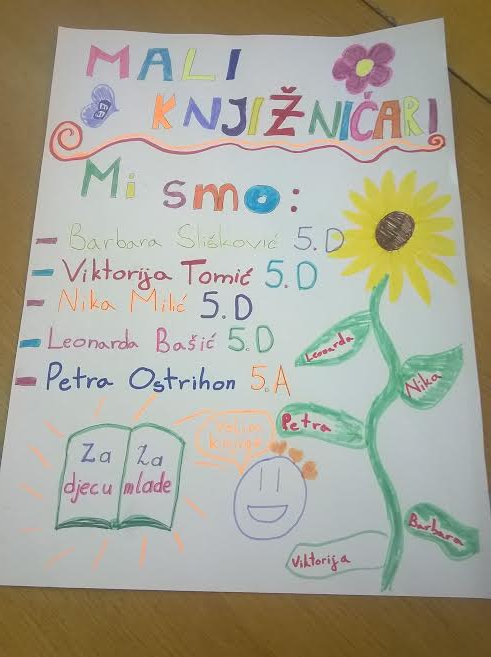 MALI
KNJIŽNIČARI
Mi smo:
- Barbara Slišković 5.D
- Viktorija Tomić 5.D
- Nika Milić 5.D
- Leonarda Bašić 5.D
- Petra Ostrihon 5.A
Leonarda
Nika
Petra
Barbara
Viktorija
Za djecu
Za mlade